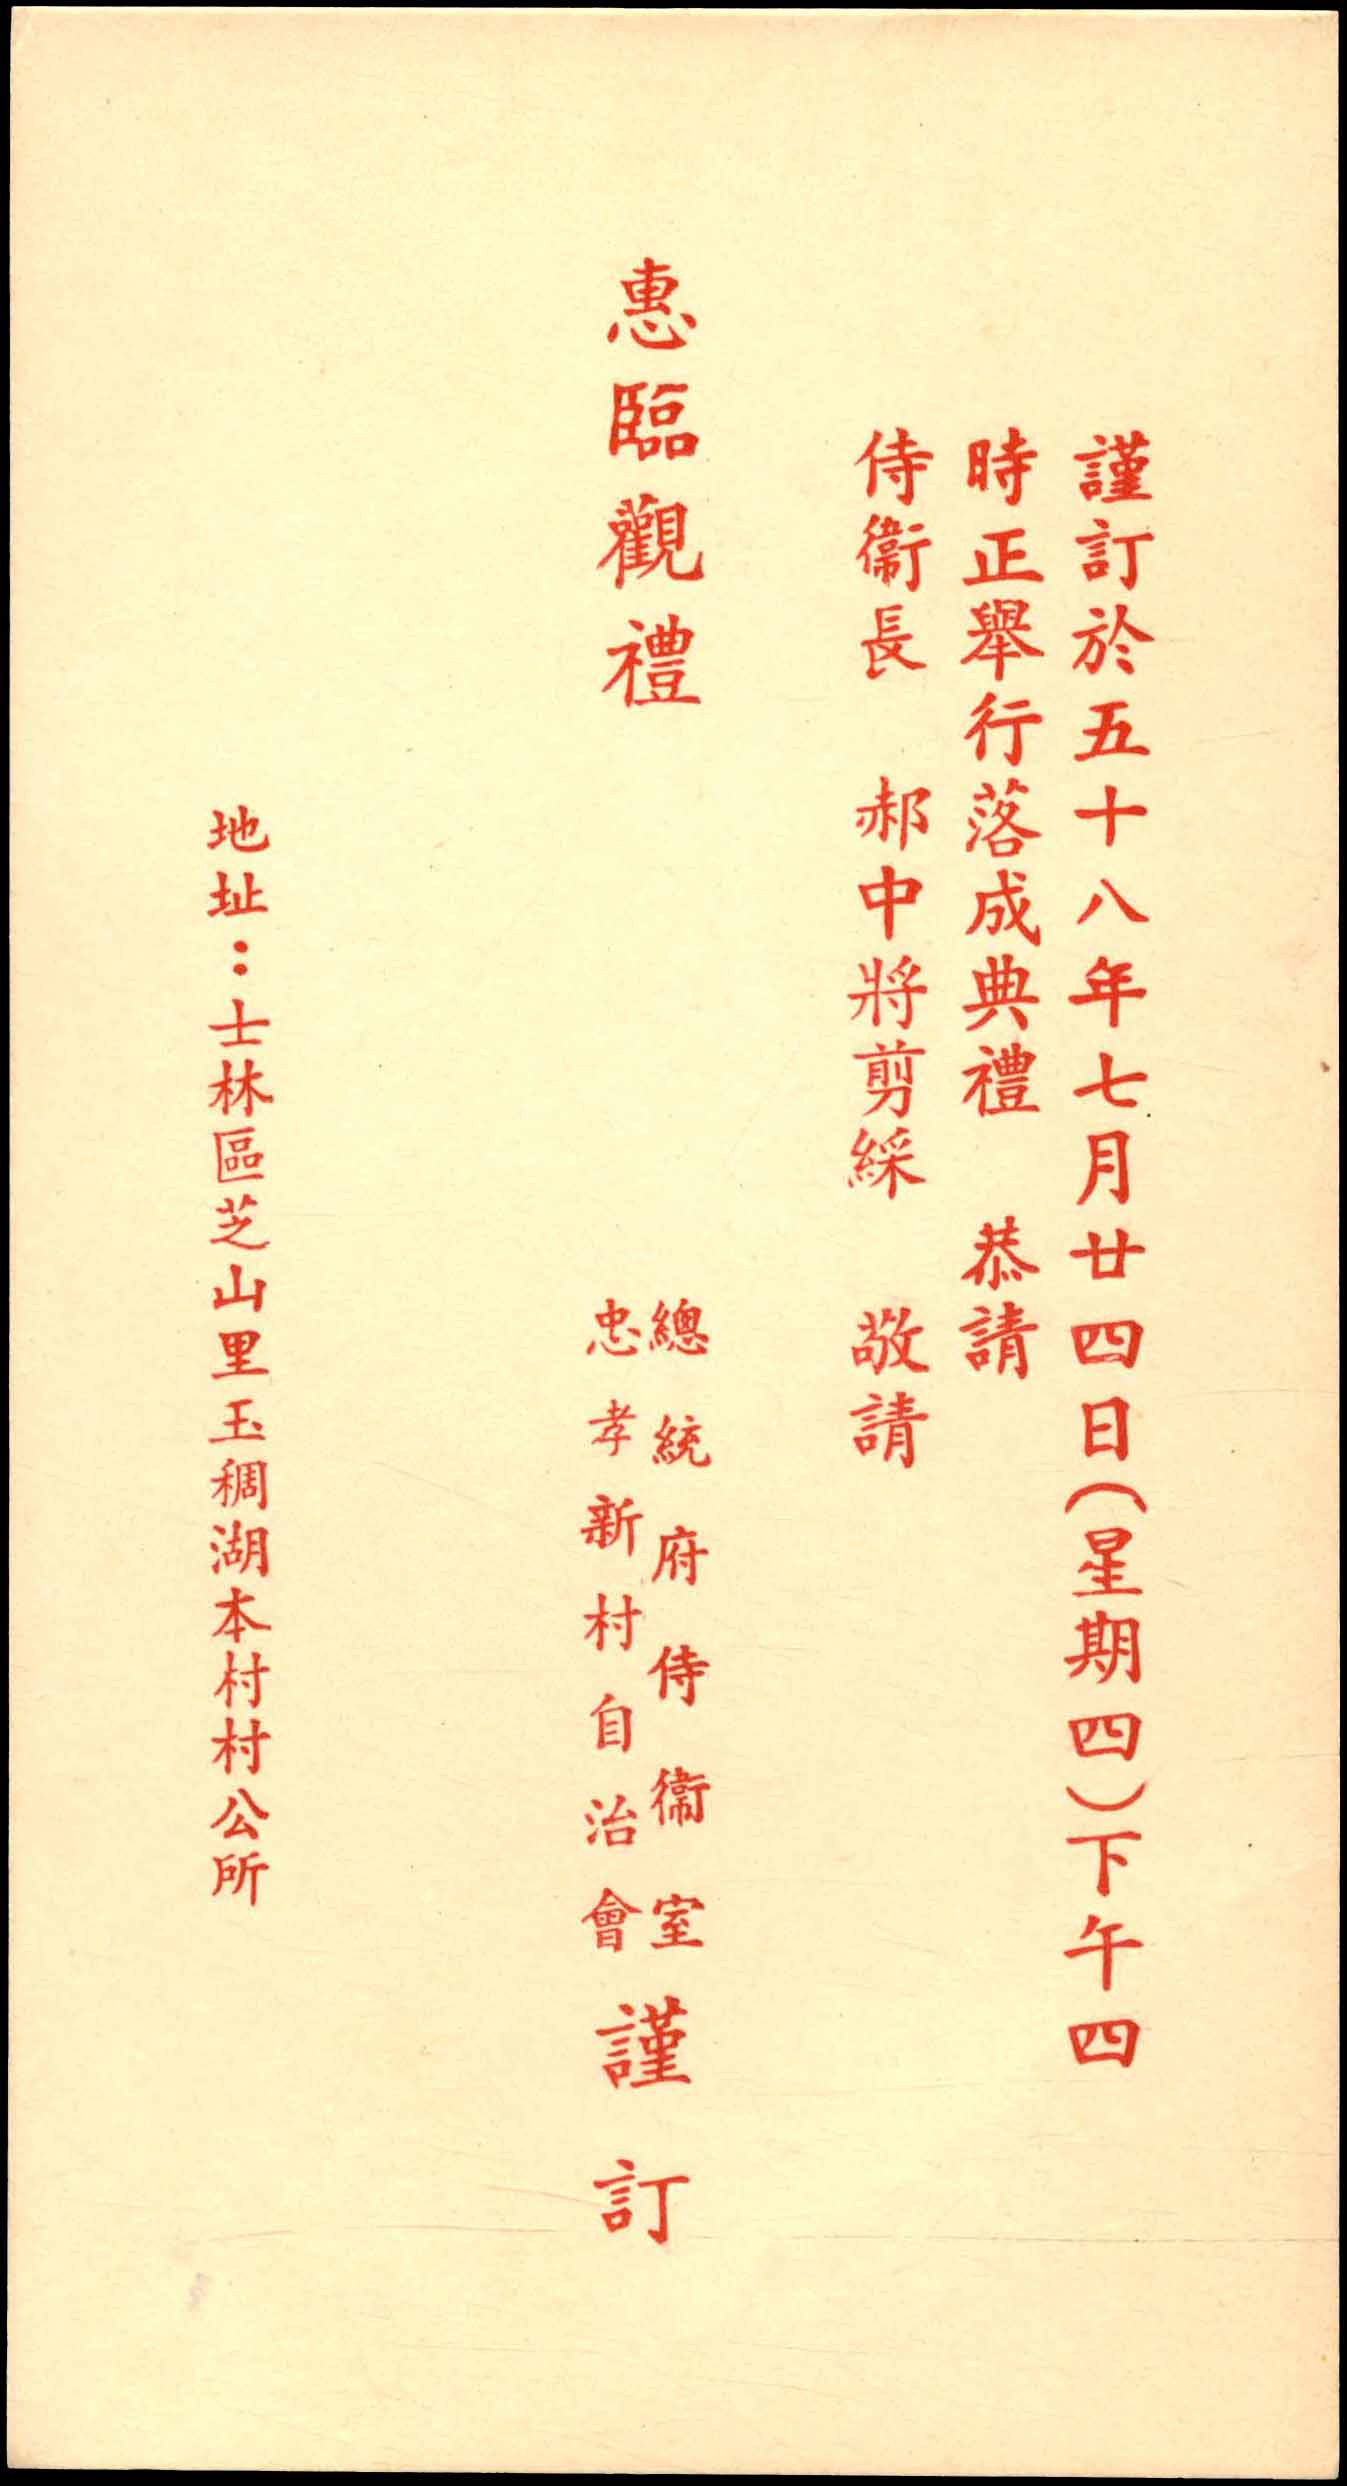 謹訂於五十八年七月廿四日(星期四)下午四
時正舉行落成典禮 恭請
侍衞長 郝中將剪綵 敬請
惠臨觀禮
總統府侍衞室
忠孝新村自治會
謹訂
地址：士林區芝山里玉稠湖本村村公所